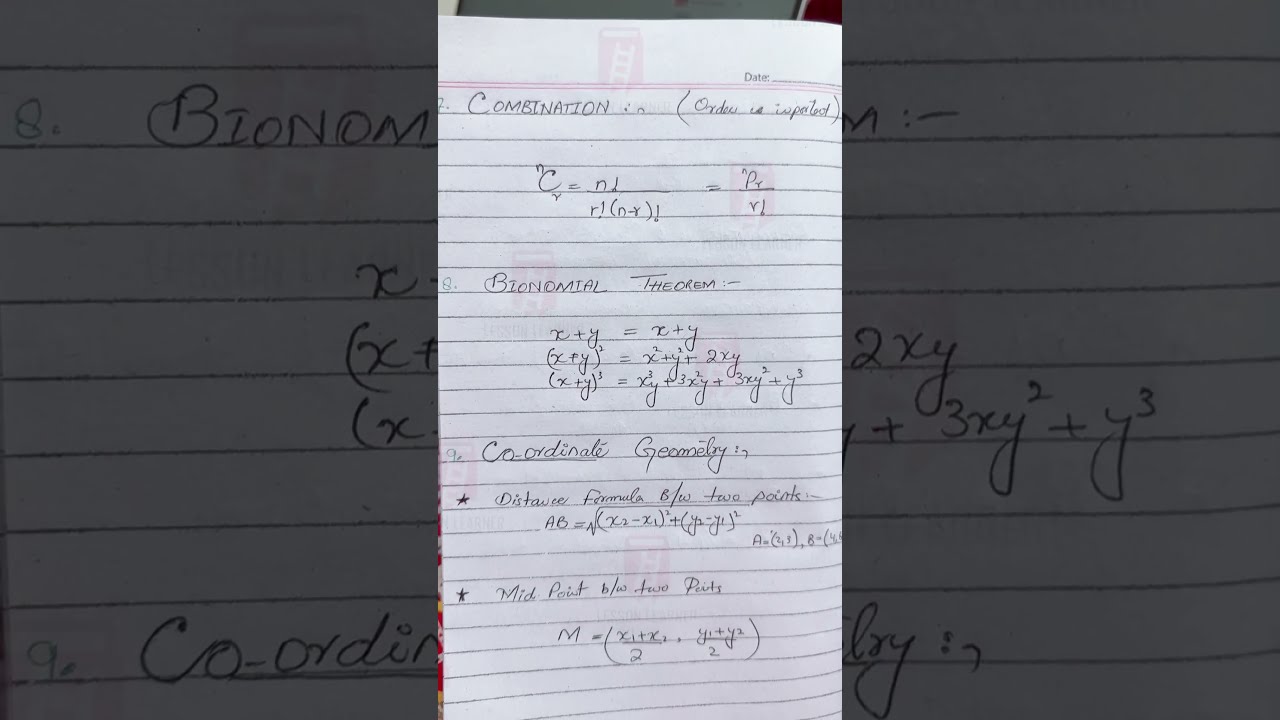 Date:
7. COMBINATION :- (Order is important)
ⁿCᵣ = n! / r!(n-r)! = ⁿPᵣ / r!
8. BIONOMIAL THEOREM :-
x+y = x+y
(x+y)² = x²+y²+ 2xy
(x+y)³ = x³y + 3x²y + 3xy² + y³
9. CO-ordinate Geometry :-
* Distance Formula B/w two points :-
AB = √(x₂-x₁)²+(y₂-y₁)²
A=(2,3), B=(4,6
* Mid Point b/w two Points
M = (x₁+x₂/2 , y₁+y₂/2)
8. BIONOM
M :-
x
(x+
2xy
(x
y + 3xy² + y³
9. CO-ordin
try :-